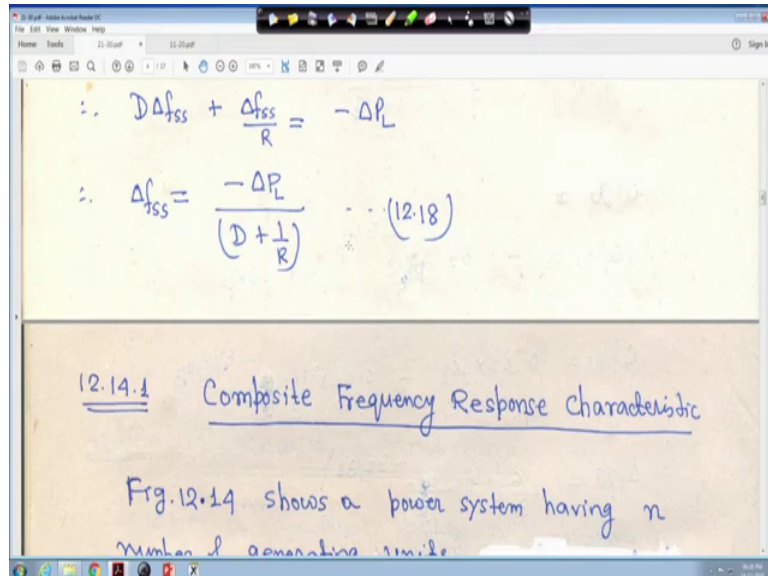 21-30.pdf - Adobe Acrobat Reader DC
File Edit View Window Help
Home Tools 21-30.pdf 11-20.pdf Sign In
∴ DΔfss + Δfss/R = - ΔPL
∴ Δfss = - ΔPL / (D + 1/R) --- (12.18)
12.14.1 Composite Frequency Response Characteristic
Fig. 12.14 shows a power system having n
number of generating units